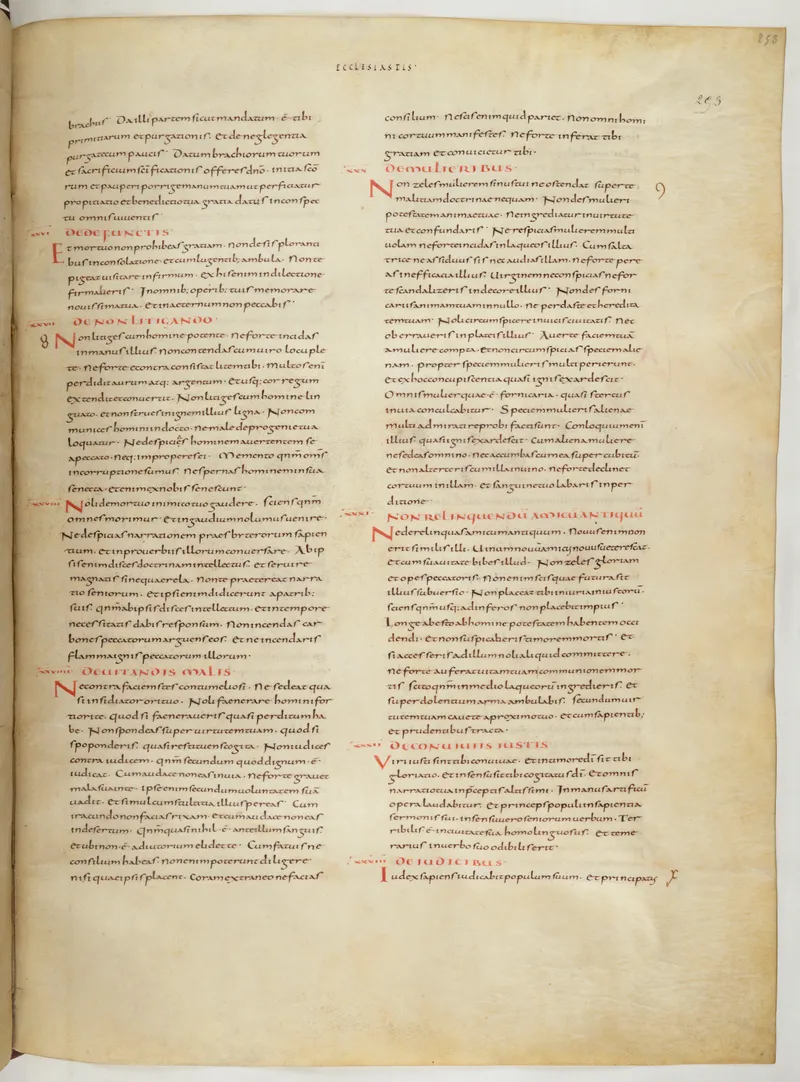 ECCLESIASTIS·
253
293
brachiis· Da illi partem sicut mandatum· ē· tibi
primitiarum et purgationis· Et de neglegentia
purgatecum paucis· Datum brachiorum tuorum
et sacrificium scīficationis offeres dnō· initia scō
rum et pauperi porrige manum tuam ut perficiatur
propitiatio et benedictio tua gratia datus inconspec
tu omnis uiuentis·
XXVI DE DEFUNCTIS·
Et mortuo non prohibeas gratiam· Non desis plorana
bus inconsolatione· et cum lugentib; ambula· Non te
pigeat uisitare infirmum· ex his enim in dilectione
firmaberis· In omnib; operib; tuis memorare
nouissima tua· Et in aeternum non peccabis·
XXVII DE NON LITIGANDO
8 Non litiges cum homine potente· ne forte incidas
in manus illius· non contendas cum uiro locuple
te· ne forte econtra constituat litem tibi· multos enī
perdidit aurum atq; argentum· Et usq; cor regum
extendit et conuertit· Non litiges cum homine lin
guato· et non strues in ignem illius ligna· Non com
munices homini indocto· ne male de progenie tua
loquatur· Ne despicias hominem auertentem se
a peccato· neq; improperes ei· Memento qnm̄ oms̄
in corruptione sumus· Ne spernas hominem in sua
senecta· etenim ex nobis senescunt·
XXVIII Noli de mortuo inimico tuo gaudere· sciens qnm̄
omnes morimur· Et in gaudium nolumus uenire·
Ne despicias narrationem praesbiterorum sapien
tium· et in prouerbiis illorum conuersare· Ab ip
sis enim disces doctrinam intellectus· et seruire
magnatis sine quaerela· Non te praetereat narra
tio seniorum· et ipsi enim didicerunt a patrib;
suis· qnm̄ ab ipsis disces intellectum· et in tempore
necessitatis dabis responsum· Non incendas car
bones peccatorum arguens eos· Et ne incendaris
flamma ignis peccatorum illorum·
XXVIIII DE UITANDIS MALIS·
Ne contra faciem stes contumeliosi· ne sedeat qua
si insidiator ori tuo· Noli faenerare homini for
tiori te· quod si faeneraueris quasi perditum ha
be· Non spondeas super uirtutem tuam· quod si
spoponderis· quasi restituens cogita· Non iudices
contra iudicem· qnm̄ secundum quod dignum· ē·
iudicat· Cum audace non eas in uia· ne forte grauet
mala sua in te· ipse enim secundum uoluntatem suā
uadit· et simul cum stultitia illius pereas· Cum
iracundo non facias rixam· et cum audace non eas
in desertum· Qnm̄ quasi nihil· ē· ante illum sanguis·
et ubi non· ē· adiutorium elidet te· Cum fatuis ne
consilium habeas· non enim poterunt diligere
nisi quae ipsis placent· Coram extraneo ne facias
consilium· nescis enim quid pariet· Non omni homi
ni cor tuum manifestes· ne forte inferat tibi
gratiam et conuicietur tibi·
XXX DE MULIERIBUS·
Non zeles mulierem sinus tui ne ostendat super te 9
malitiam doctrinae nequam· Non des mulieri
potestatem animae tuae· ne ingrediatur in uirtute
tua et confundaris· Ne respicias mulierem multi
uolam ne forte incidas in laqueos illius· Cum salta
trice ne assiduus sis nec audias illam· ne forte pere
as in efficacia illius· Uirginem ne conspicias ne for
te scandalizeris in decore illius· Non des forni
cariis animam tuam in nullo· ne perdas te et heredita
tem tuam· Noli circumspicere in uicis ciuitatis· nec
oberraueris in plateis illius· Auerte faciem tuā
a muliere compta· et non circumspicias speciem alie
nam· propter speciem mulieris multi perierunt·
Et ex hoc concupiscentia quasi ignis exardescit·
Omnis mulier quae· ē· fornicaria· quasi stercus
in uia conculcabitur· Speciem mulieris alienae
multi admirati reprobi facti sunt· Conloquium enī
illius quasi ignis exardescit· Cum aliena muliere
ne sedeas omnino· nec accumbas cum ea super cubitū
et non alterceris cum illa in uino· ne forte declinet
cor tuum in illam· et sanguine tuo labaris in per
ditione·
XXXI NON RELINQUENDŪ AMICUM ANTIQUŪ
Ne derelinquas amicum antiquum· Nouus enim non
erit similis illi· Uinum nouum amicus nouus ueterescat·
et cum suauitate bibes illud· Non zeles gloriam
et opes peccatoris· Non enim scis quae futura sit
illius subuersio· Non placeat tibi iniuria iniustorū·
sciens qnm̄ usq; ad inferos non placebit impius·
Longe abesto ab homine potestatem habentem occi
dendi· et non suspicaberis timorem mortis· Et
si accesseris ad illum noli aliquid committere·
ne forte auferat uitam tuam communionem mor
tis scito qnm̄ in medio laqueorū ingredieris· et
super dolentium arma ambulabis· secundum uir
tutem tuam caue te a proximo tuo· et cum sapientib;
et prudentibus tracta·
XXXII DE CONUIUIIS IUSTIS
Uiri iusti sint tibi conuiuae· et in timore dī sit tibi
gloriatio· et in sensu sit tibi cogitatus dī· et omnis
narratio tua in preceptis altissimi· In manu artificū
opera laudabitur· et princeps populi in sapientia
sermonis sui· in sensu uero seniorum uerbum· Ter
ribilis· ē· in ciuitate sua homo linguosus· et teme
rarius in uerbo suo odibilis erit·
XXXIII DE IUDICIBUS·
Iudex sapiens iudicabit populum suum· et principatus X